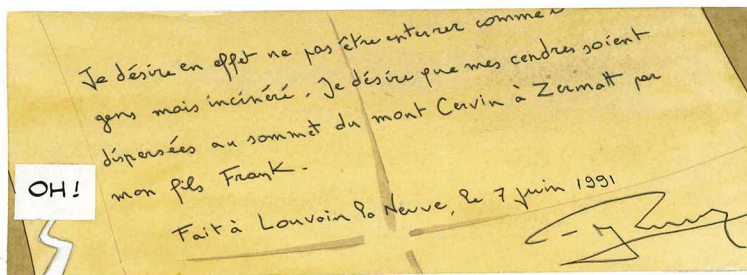 Je désire en effet ne pas être enterrer comme
gens mais incinéré. Je désire que mes cendres soient
dispersées au sommet du mont Cervin à Zermatt par
mon fils Frank.
OH!
Fait à Louvain la Neuve, le 7 juin 1991